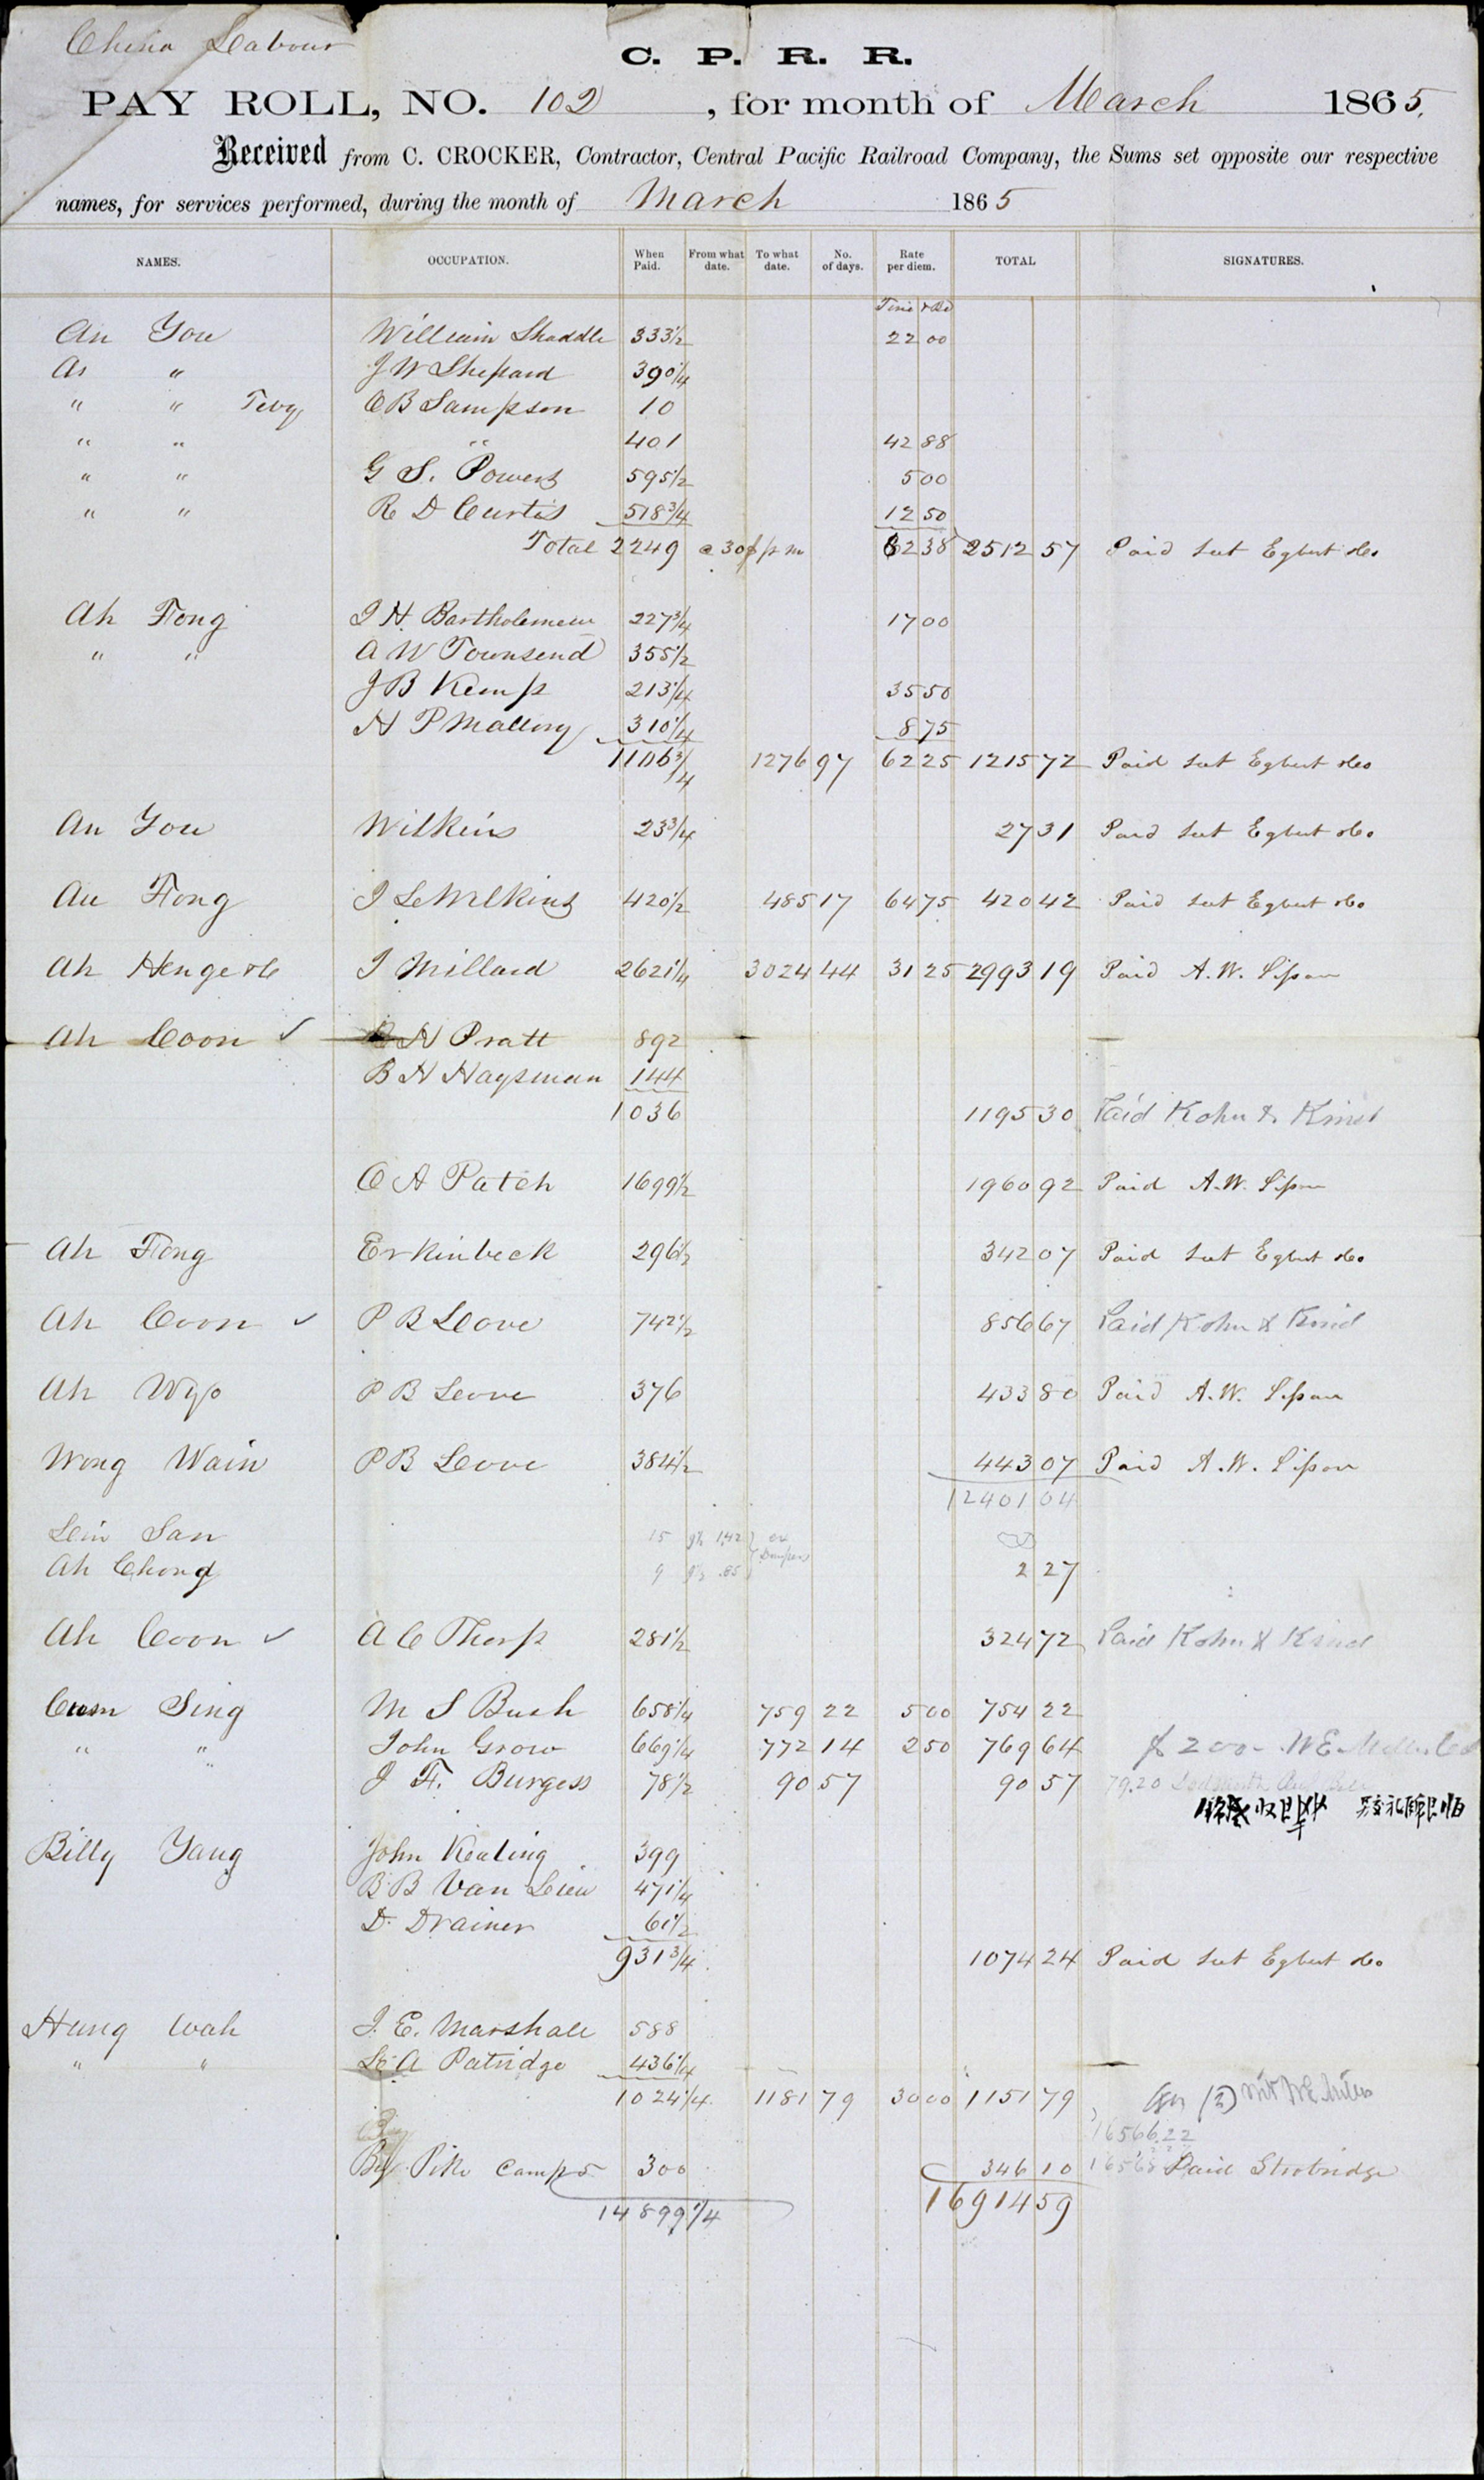 China Labour
C. P. R. R.
PAY ROLL, NO. 102 , for month of March 1865.
Received from C. CROCKER, Contractor, Central Pacific Railroad Company, the Sums set opposite our respective
names, for services performed, during the month of March 1865
NAMES. OCCUPATION. When Paid. From what date. To what date. No. of days. Rate per diem. TOTAL SIGNATURES.
An You William Shaddle 333 1/2 22 00
As " J W Shepard 390 1/4
" " O B Sampson 10
" " " 401 42 88
" " G S. Powers 595 1/2 5 00
" " R D Curtis 518 3/4 12 50
Total 2249 @ 30 p m 82 38 2512 57 Paid Egbert &Co
Ah Fong J H Bartholemew 227 3/4 17 00
" " A W Townsend 355 1/2
J B Kemp 213 1/4 35 50
H P Mallory 310 1/4 8 75
1106 3/4 1276 97 62 25 1215 72 Paid Egbert &Co
An You Wilkins 23 3/4 27 31 Paid Egbert &Co
Au Fong J L Wilkins 420 1/2 485 17 64 75 420 42 Paid Egbert &Co
Ah Henge &C J Millard 2621 1/4 3024 44 31 25 2993 19 Paid A. W.
Ah Coon ✓ H Pratt 892
B H Haysman 144
1036 1195 30 Paid Kohn &
C A Patch 1699 1/2 1960 92 Paid A. W.
Ah Fong Erkinbeck 296 1/2 342 07 Paid Egbert &Co
Ah Coon ✓ P B Leove 742 1/2 856 67 Paid Kohn &
Ah Wyo P B Leove 376 433 80 Paid A. W.
Wong Wain P B Leove 384 1/2 443 07 Paid A. W.
12401 04
Lein San 15 1,42
Ah Chong 9 .85 2 27
Ah Coon ✓ A C Thorp 281 1/2 324 72 Paid Kohn &
Sing M S Bush 658 1/4 759 22 5 00 754 22
" " John Grow 669 1/4 772 14 2 50 769 64 $ 200-
J F. Burgess 78 1/2 90 57 90 57 79.20
Billy Yang John Keating 399
B B Van 471 1/4
D. Drainer 61 1/2
931 3/4 1074 24 Paid Egbert &Co
Hung Wah J. E. Marshall 588
" " A Patridge 436 1/4
1024 1/4 1181 79 30 00 1151 79
16566.22
By Pike Camp 5 300 346 10 Paid Strobridge
14899 1/4 16914 59